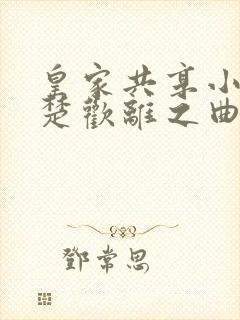 皇家共享小
楚歡離之曲
鄧常思